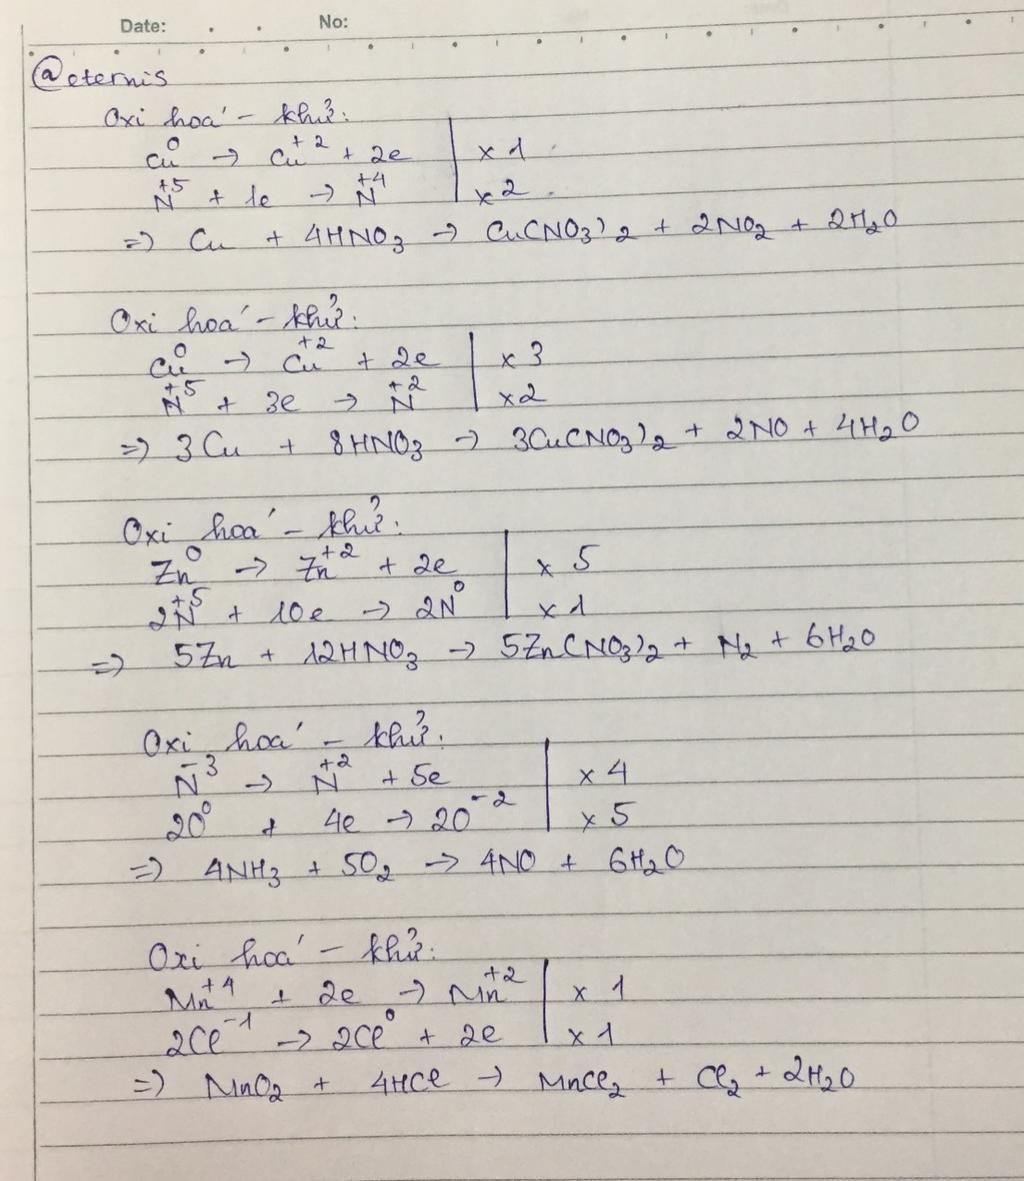 Date: . . No:
@eternis
Oxi hoá - khử:
Cu⁰ → Cu⁺² + 2e | x 1
N⁺⁵ + 1e → N⁺⁴ | x 2
=> Cu + 4HNO₃ → Cu(NO₃)₂ + 2NO₂ + 2H₂O
Oxi hoá - khử:
Cu⁰ → Cu⁺² + 2e | x 3
N⁺⁵ + 3e → N⁺² | x 2
=> 3Cu + 8HNO₃ → 3Cu(NO₃)₂ + 2NO + 4H₂O
Oxi hoá - khử:
Zn⁰ → Zn⁺² + 2e | x 5
2N⁺⁵ + 10e → 2N⁰ | x 1
=> 5Zn + 12HNO₃ → 5Zn(NO₃)₂ + N₂ + 6H₂O
Oxi hoá - khử:
N⁻³ → N⁺² + 5e | x 4
2O⁰ + 4e → 2O⁻² | x 5
=> 4NH₃ + 5O₂ → 4NO + 6H₂O
Oxi hoá - khử:
Mn⁺⁴ + 2e → Mn⁺² | x 1
2Cl⁻¹ → 2Cl⁰ + 2e | x 1
=> MnO₂ + 4HCl → MnCl₂ + Cl₂ + 2H₂O